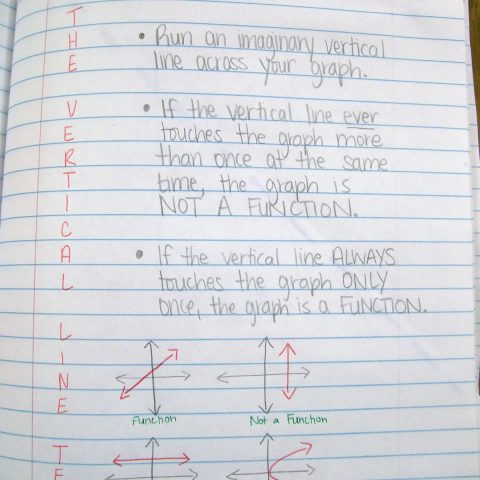 THE VERTICAL LINE TE
• Run an imaginary vertical
line across your graph.
• If the vertical line ever
touches the graph more
than once at the same
time, the graph is
NOT A FUNCTION.
• If the vertical line ALWAYS
touches the graph ONLY
once, the graph is a FUNCTION.
Function
Not a Function